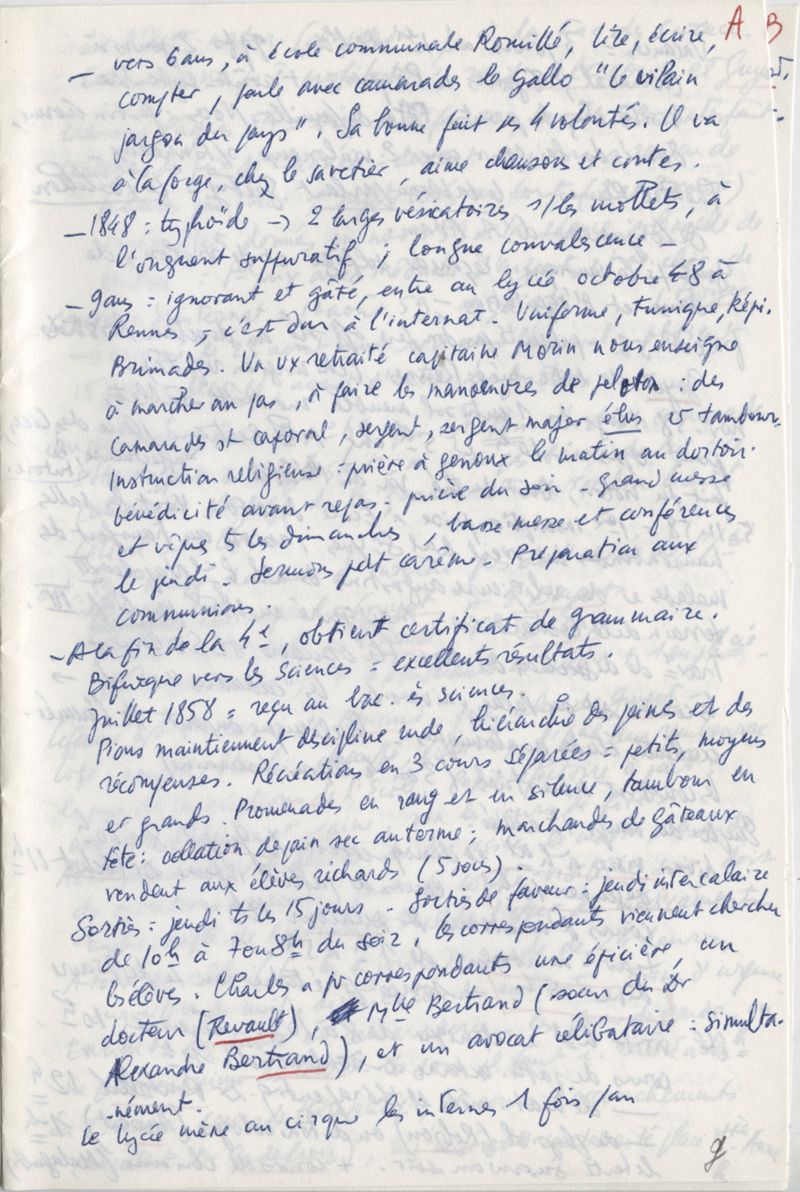 A B
– vers 6 ans, à école communale Romillé, lire, écrire,
compter, parle avec camarades le gallo "le vilain
jargon du pays". Sa bonne fait ses 4 volontés. Il va
à la forge, chez le savetier, aime chansons et contes.
– 1848 : typhoïde → 2 larges vésicatoires s/ les mollets, à
l'onguent suppuratif ; longue convalescence –
– 9 ans = ignorant et gâté, entre au lycée octobre 48 à
Rennes ; c'est dur à l'internat – Uniforme, tunique, képi.
Brimades. Un vx retraité capitaine Morin nous enseigne
à marcher au pas, à faire les manoeuvres de peloton : des
camarades st caporal, sergent, sergent major élus tambour.
Instruction religieuse : prière à genoux le matin au dortoir.
bénédicité avant repas – prière du soir – grand messe
et vêpres ts les dimanches, basse messe et conférences
le jeudi – Sermons pdt carême – Préparation aux
communions.
– A la fin de la 4e, obtient certificat de grammaire.
Bifurque vers les Sciences = excellents résultats.
Juillet 1858 = reçu au bac. ès sciences.
Pions maintiennent discipline rude, hiérarchie des peines et des
récompenses. Récréations en 3 cours séparées = petits, moyens
et grands. Promenades en rang et en silence, tambour en
tête : collation de pain sec au terme ; marchandes de gâteaux
vendent aux élèves richards (5 sous).
Sorties = jeudi ts les 15 jours – Sorties de faveur = jeudi intercalaire
de 10h à 7 ou 8h du soir, les correspondants viennent chercher
les élèves. Charles a pr correspondants une épicière, un
docteur (Revault), Mlle Bertrand (soeur du Dr
Alexandre Bertrand), et un avocat célibataire = simulta-
nément.
Le lycée mène au cirque les internes 1 fois / an